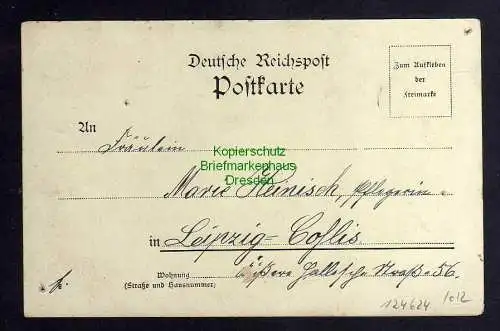 Deutsche Reichspost
Postkarte
Zum Aufkleben
der
Freimarke
An
Fräulein
Kopierschutz
Briefmarkenhaus
Dresden
Marie Heinisch, Pflegerin
in Leipzig-Gohlis
Wohnung
(Straße und Hausnummer)
Äußere Hallesche Straße 56.
124624